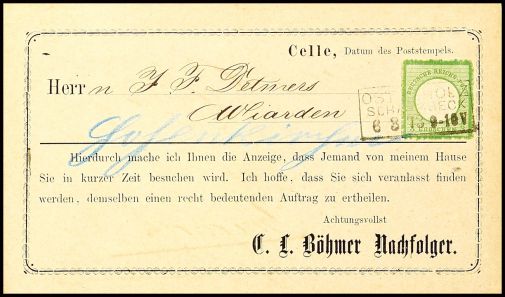 Celle, Datum des Poststempels.
Herrn J. F. Detmers
Wiarden
Hohenkirchen
Hierdurch mache ich Ihnen die Anzeige, dass Jemand von meinem Hause
Sie in kurzer Zeit besuchen wird. Ich hoffe, dass Sie sich veranlasst finden
werden, demselben einen recht bedeutenden Auftrag zu ertheilen.
Achtungsvollst
C. L. Böhmer Nachfolger.